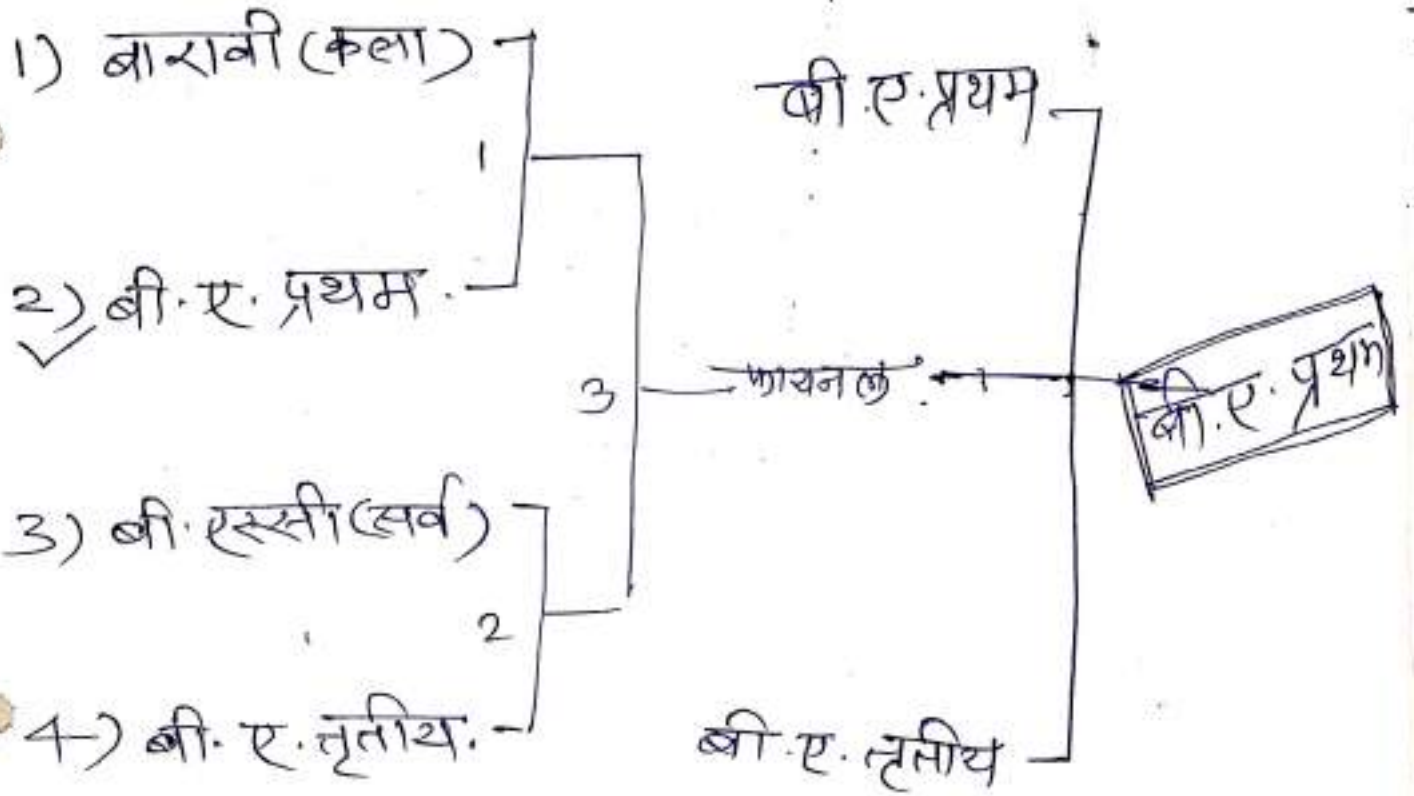 1) बारावी (कला)
1
2) बी. ए. प्रथम.
3
3) बी. एस्सी (सर्व)
2
4) बी. ए. तृतीय.
बी. ए. प्रथम
फायनल
बी. ए. तृतीय
बी. ए. प्रथम